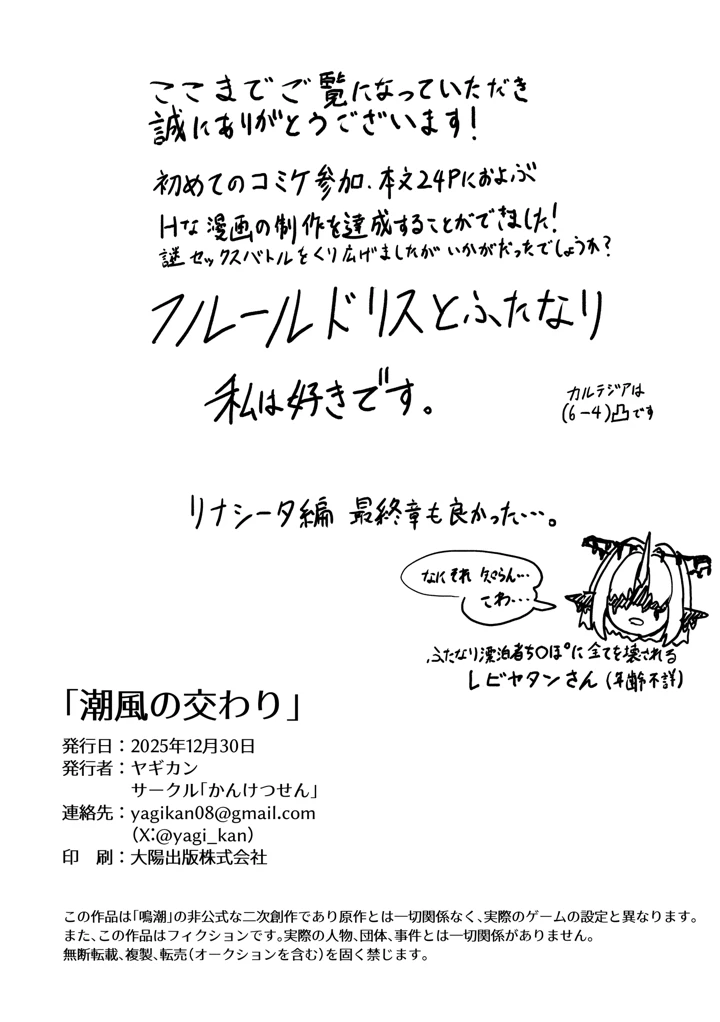 ここまでご覧になっていただき
誠にありがとうございます!
初めてのコミケ参加、本文24Pにおよぶ
Hな漫画の制作を達成することができました!
謎セックスバトルをくり広げましたがいかがだったでしょうか?
フルールドリスとふたなり
私は好きです。
カルテジアは
(6-4)凸です
リナシータ編 最終章も良かった…。
なにそれ 知らん…
こわ…
ふたなり漂泊者ち○ぽに全てを壊される
レビヤタンさん(年齢不詳)
「潮風の交わり」
発行日:2025年12月30日
発行者:ヤギカン
サークル「かんけつせん」
連絡先:yagikan08@gmail.com
(X:@yagi_kan)
印 刷:大陽出版株式会社
この作品は「鳴潮」の非公式な二次創作であり原作とは一切関係なく、実際のゲームの設定と異なります。
また、この作品はフィクションです。実際の人物、団体、事件とは一切関係がありません。
無断転載、複製、転売(オークションを含む)を固く禁じます。